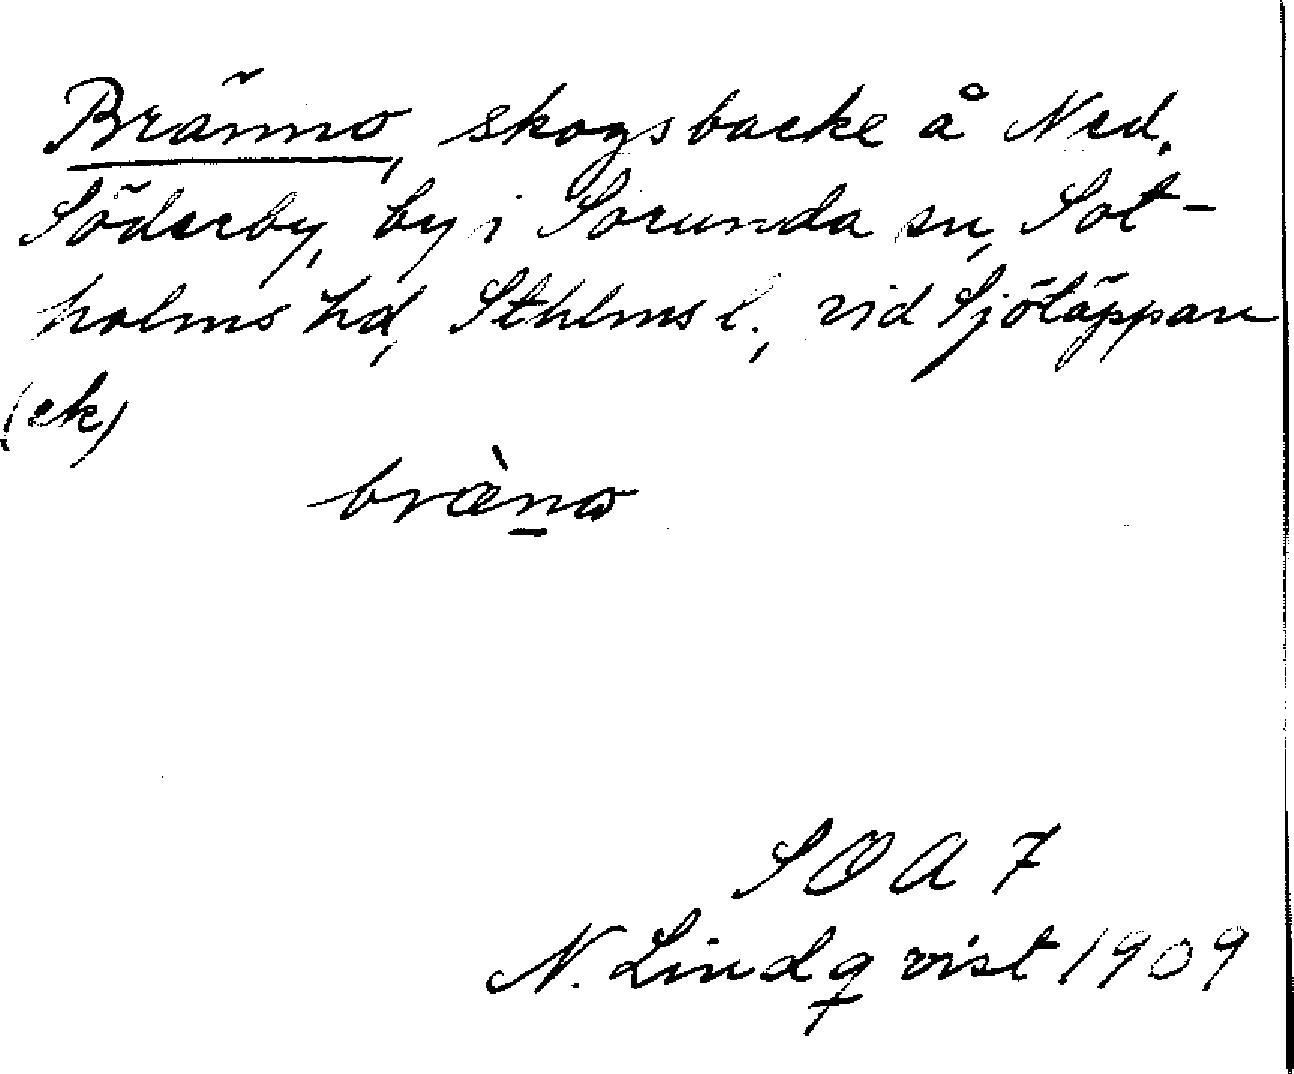 Brännö, skogsbacke å Ned.
Söderby, by i Sorunda sn, Sot-
holms hd, Sthlms l., vid Sjötäppan
(ek)
brænɷ
SOA 7
N. Lindqvist 1909